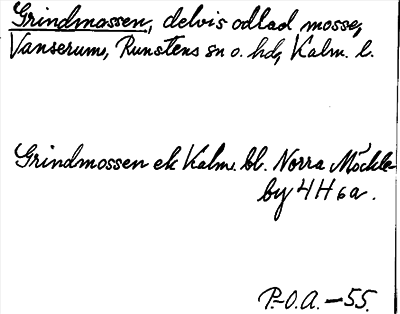 Grindmossen, delvis odlad mosse,
Vanserum, Runstens sn o. hd, Kalm. l.
Grindmossen ek Kalm. bl. Norra Möckle-
by 4H 6a.
P.O.A. -55.